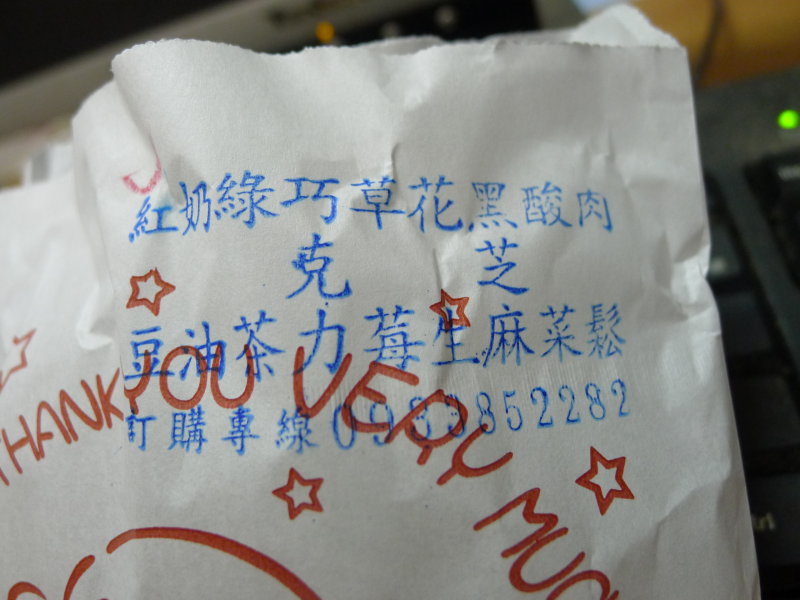 紅豆
奶油
綠茶
巧克力
草莓
花生
黑芝麻
酸菜
肉鬆
訂購專線
THANK YOU VERY